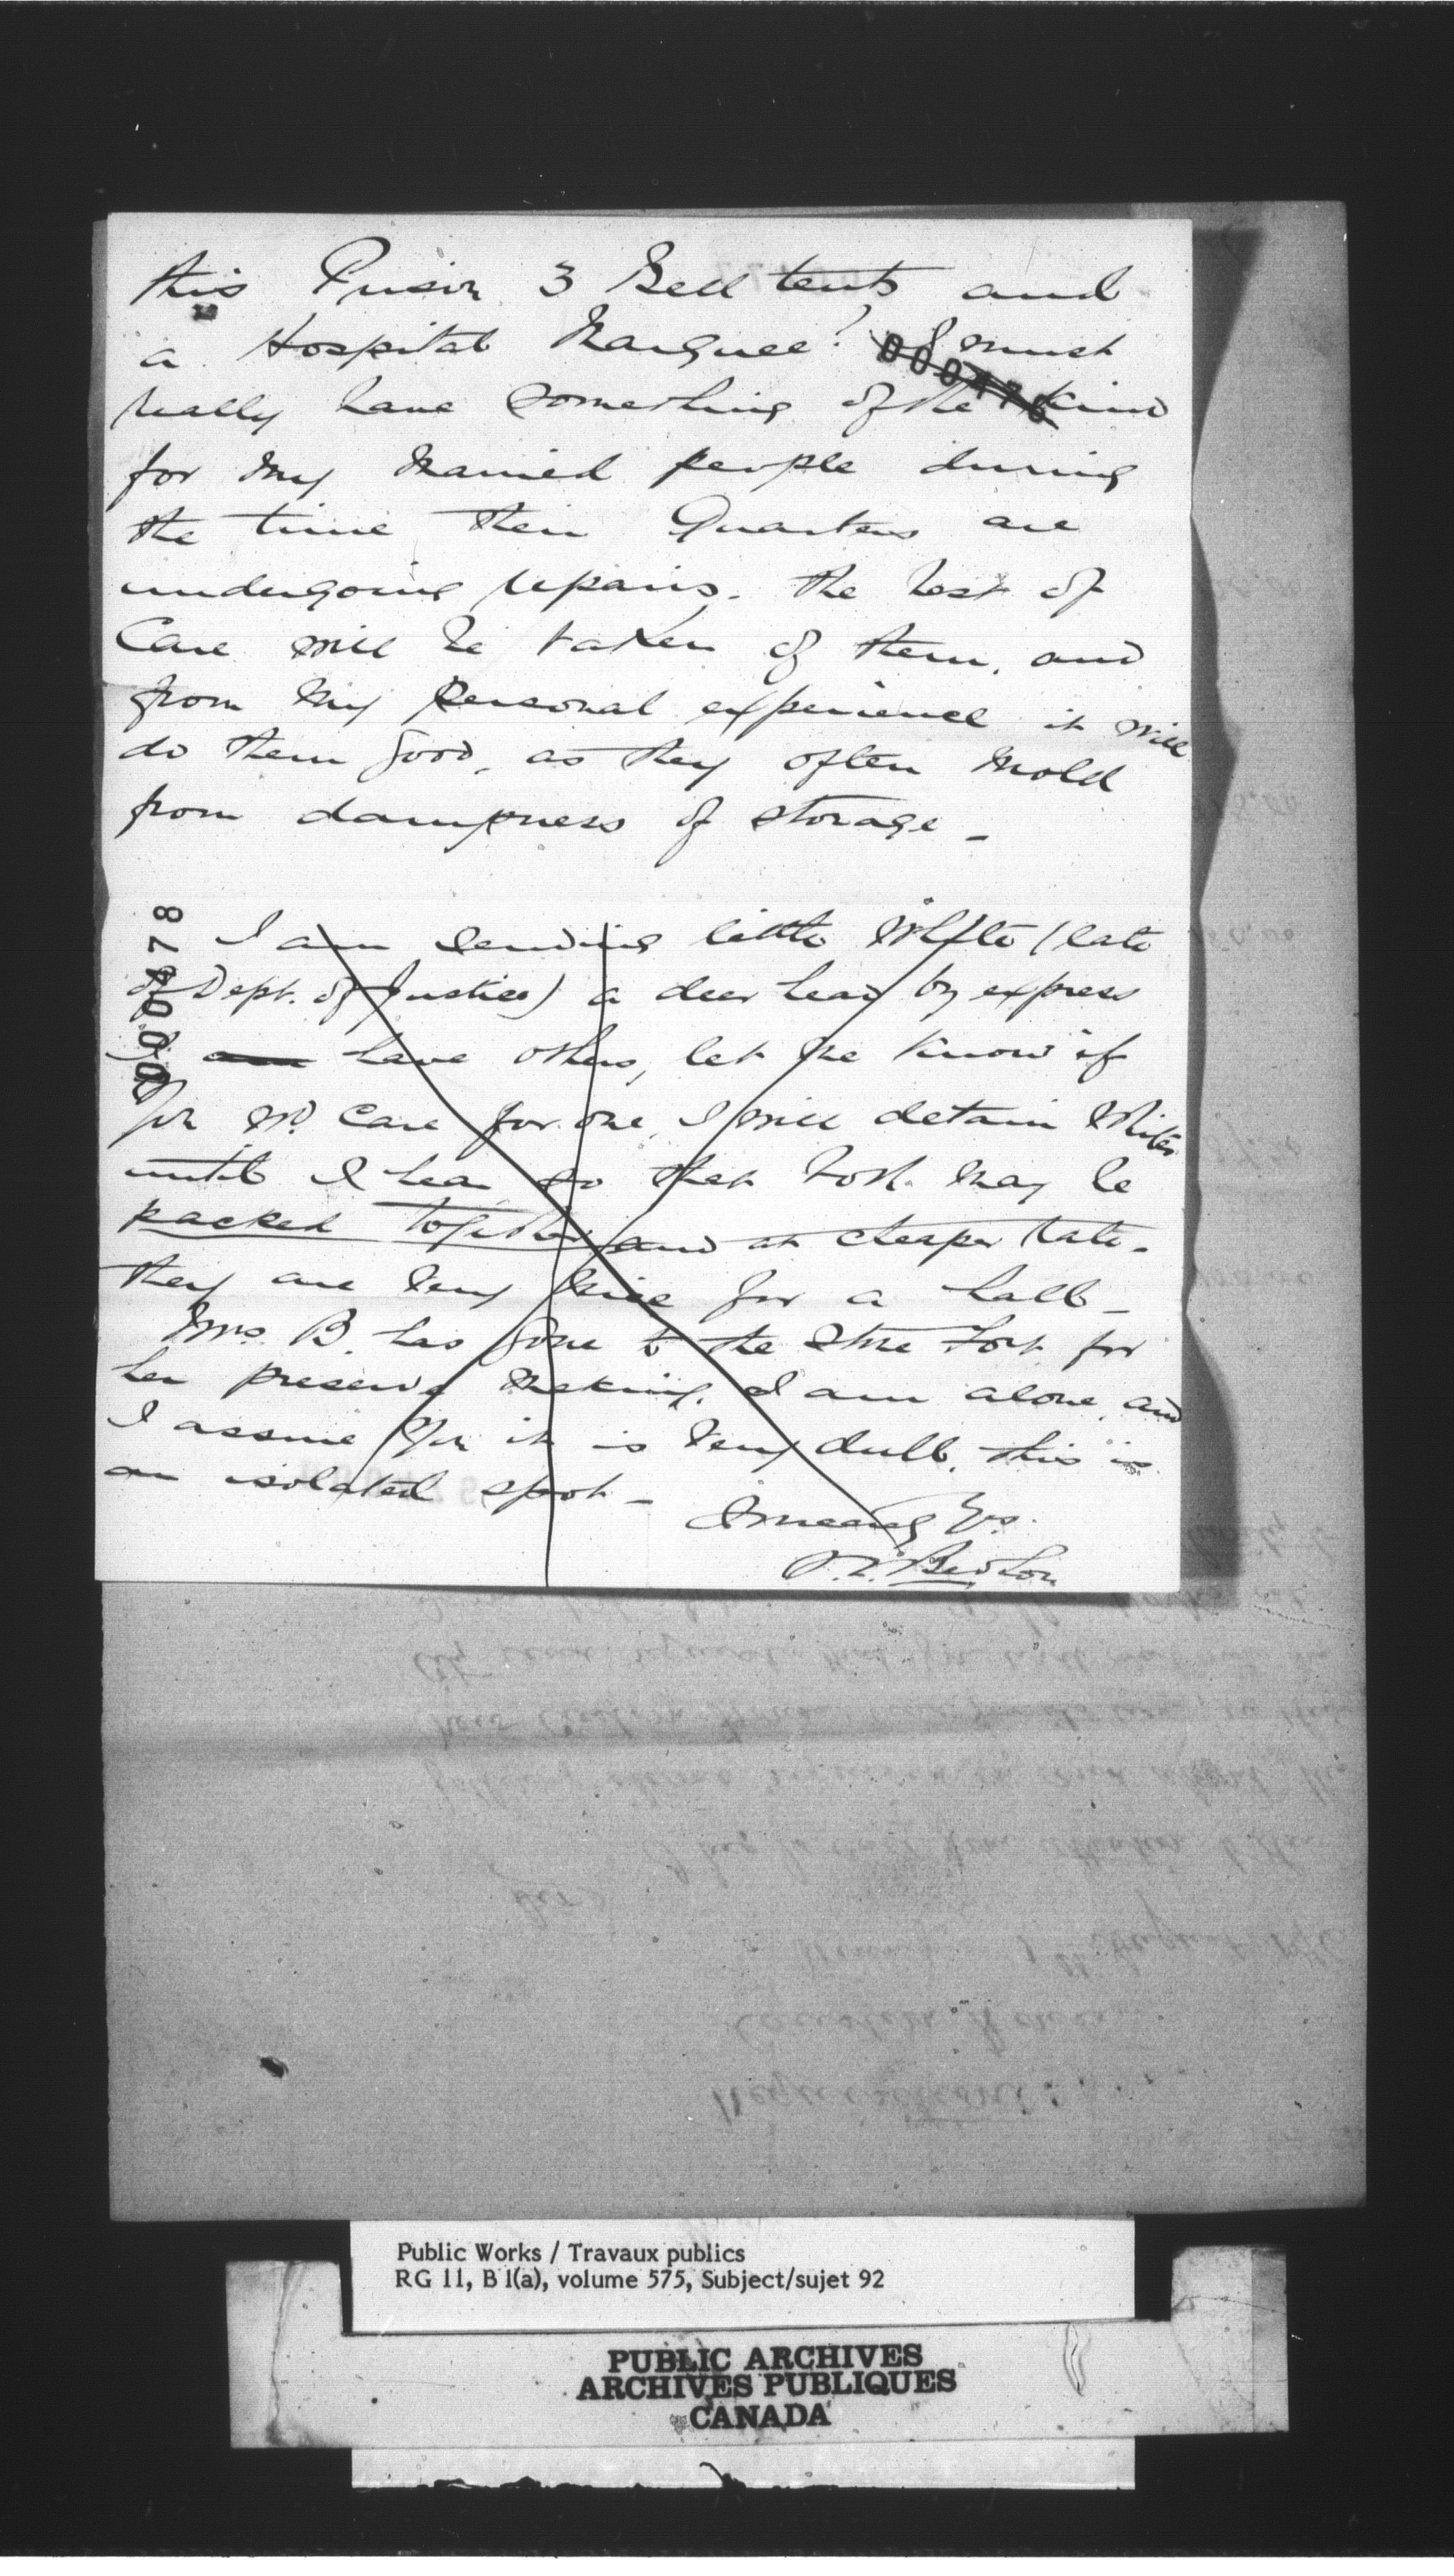 this Prison 3 Bell tents and
a Hospital Marquee? I must
000476
really have something of the kind
for my Married people during
the time their Quarters are
undergoing repairs. The best of
Care will be taken of them, and
from my personal experience it will
do them good, as they often mold
from dampness of storage _
000478
I am sending little White (late
of Dept. of Justice) a deer head by express
I am have others, let me know if
you wd. care for one, I will detain Whites
until I hear so that both may be
packed together and at cheaper rate.
they are very nice for a hall _
Mrs. B. has gone to the Stone Fort for
her preserve making, I am alone and
I assure you it is very dull, this is
an isolated spot _
Sincerely Yrs.
S. L. Bedson
Public Works / Travaux publics
RG 11, B 1(a), volume 575, Subject/sujet 92
PUBLIC ARCHIVES
ARCHIVES PUBLIQUES
CANADA